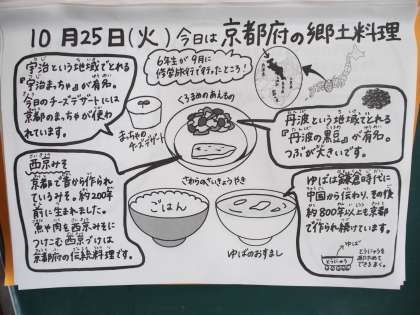 10月25日(火) 今日は 京都府の郷土料理
6年生が9月に
修学旅行で行ったところ!
宇治という地域でとれる
『宇治まっちゃ』が有名。
今日のチーズデザートには
京都のまっちゃが使わ
れています。
まっちゃの
チーズデザート
くろまめのあんもの
さわらのさいきょうやき
丹波という地域でとれる
『丹波の黒豆』が有名。
つぶが大きいです。
西京みそ
京都で昔から作られ
ているみそ。約200年
前に生まれました。
魚や肉を西京みそに
つけこむ西京づけは
京都府の伝統料理です。
ごはん
ゆばのおすまし
ゆばは鎌倉時代に
中国から伝わり、その後
約800年以上も京都
で作られ続けています。
ゆば
とうにゅう
とうにゅうを
あたためて
できるまく。